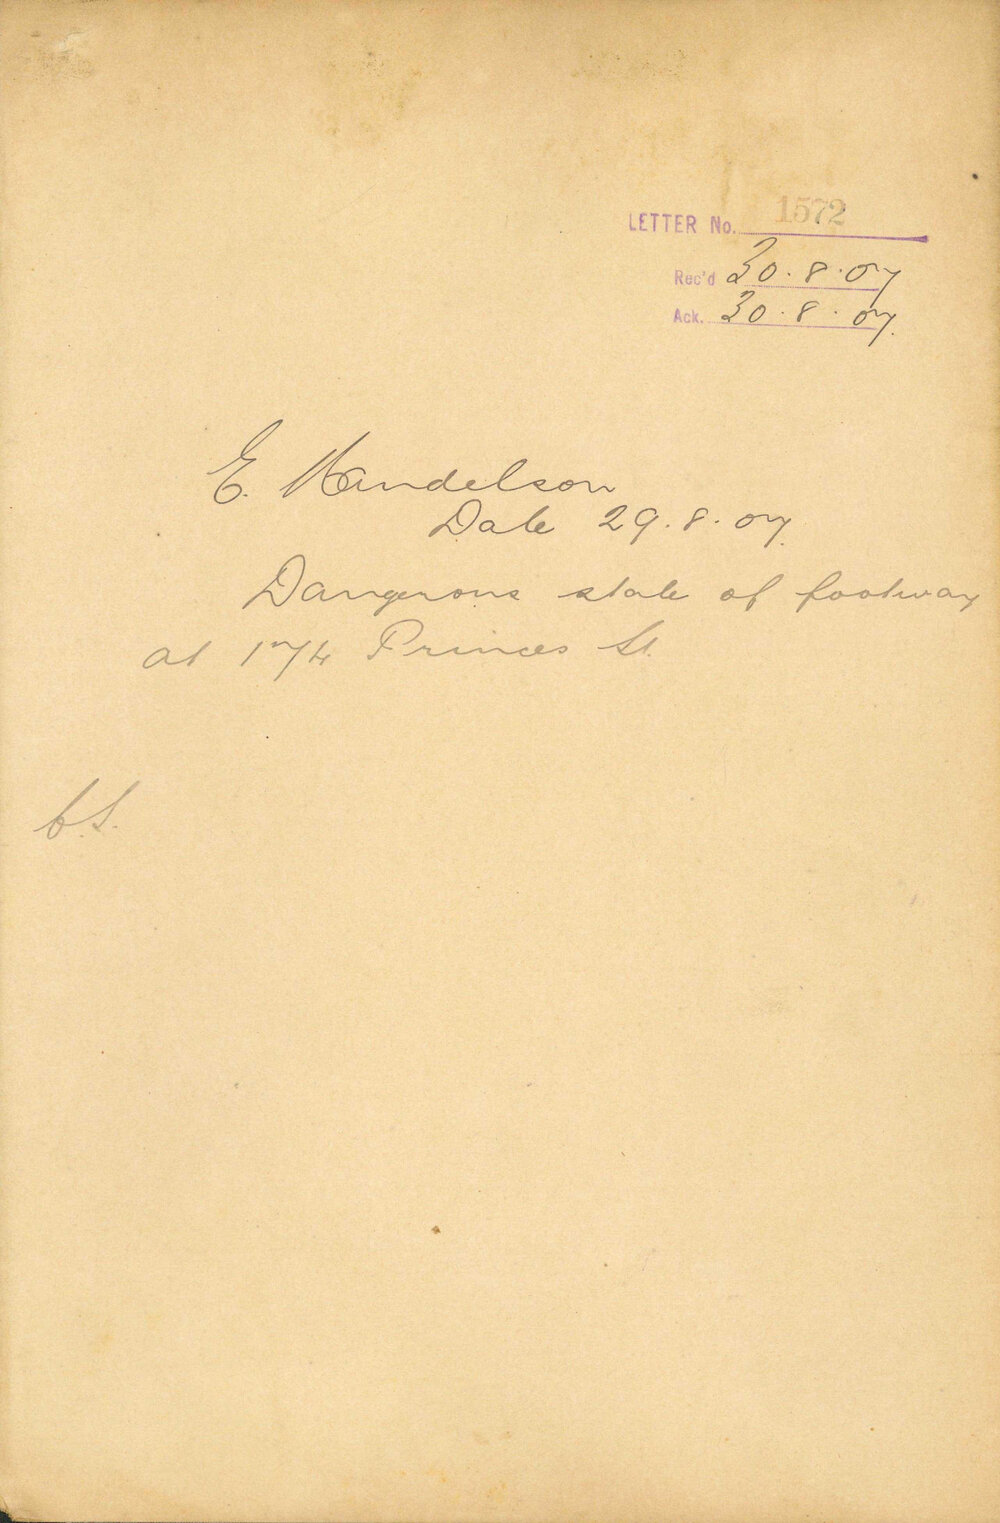 LETTER No. 1572
Rec'd 30.8.07
Ack. 30.8.07.
E. Mendelson
Date 29.8.07.
Dangerous state of footway
at 174 Princes St.